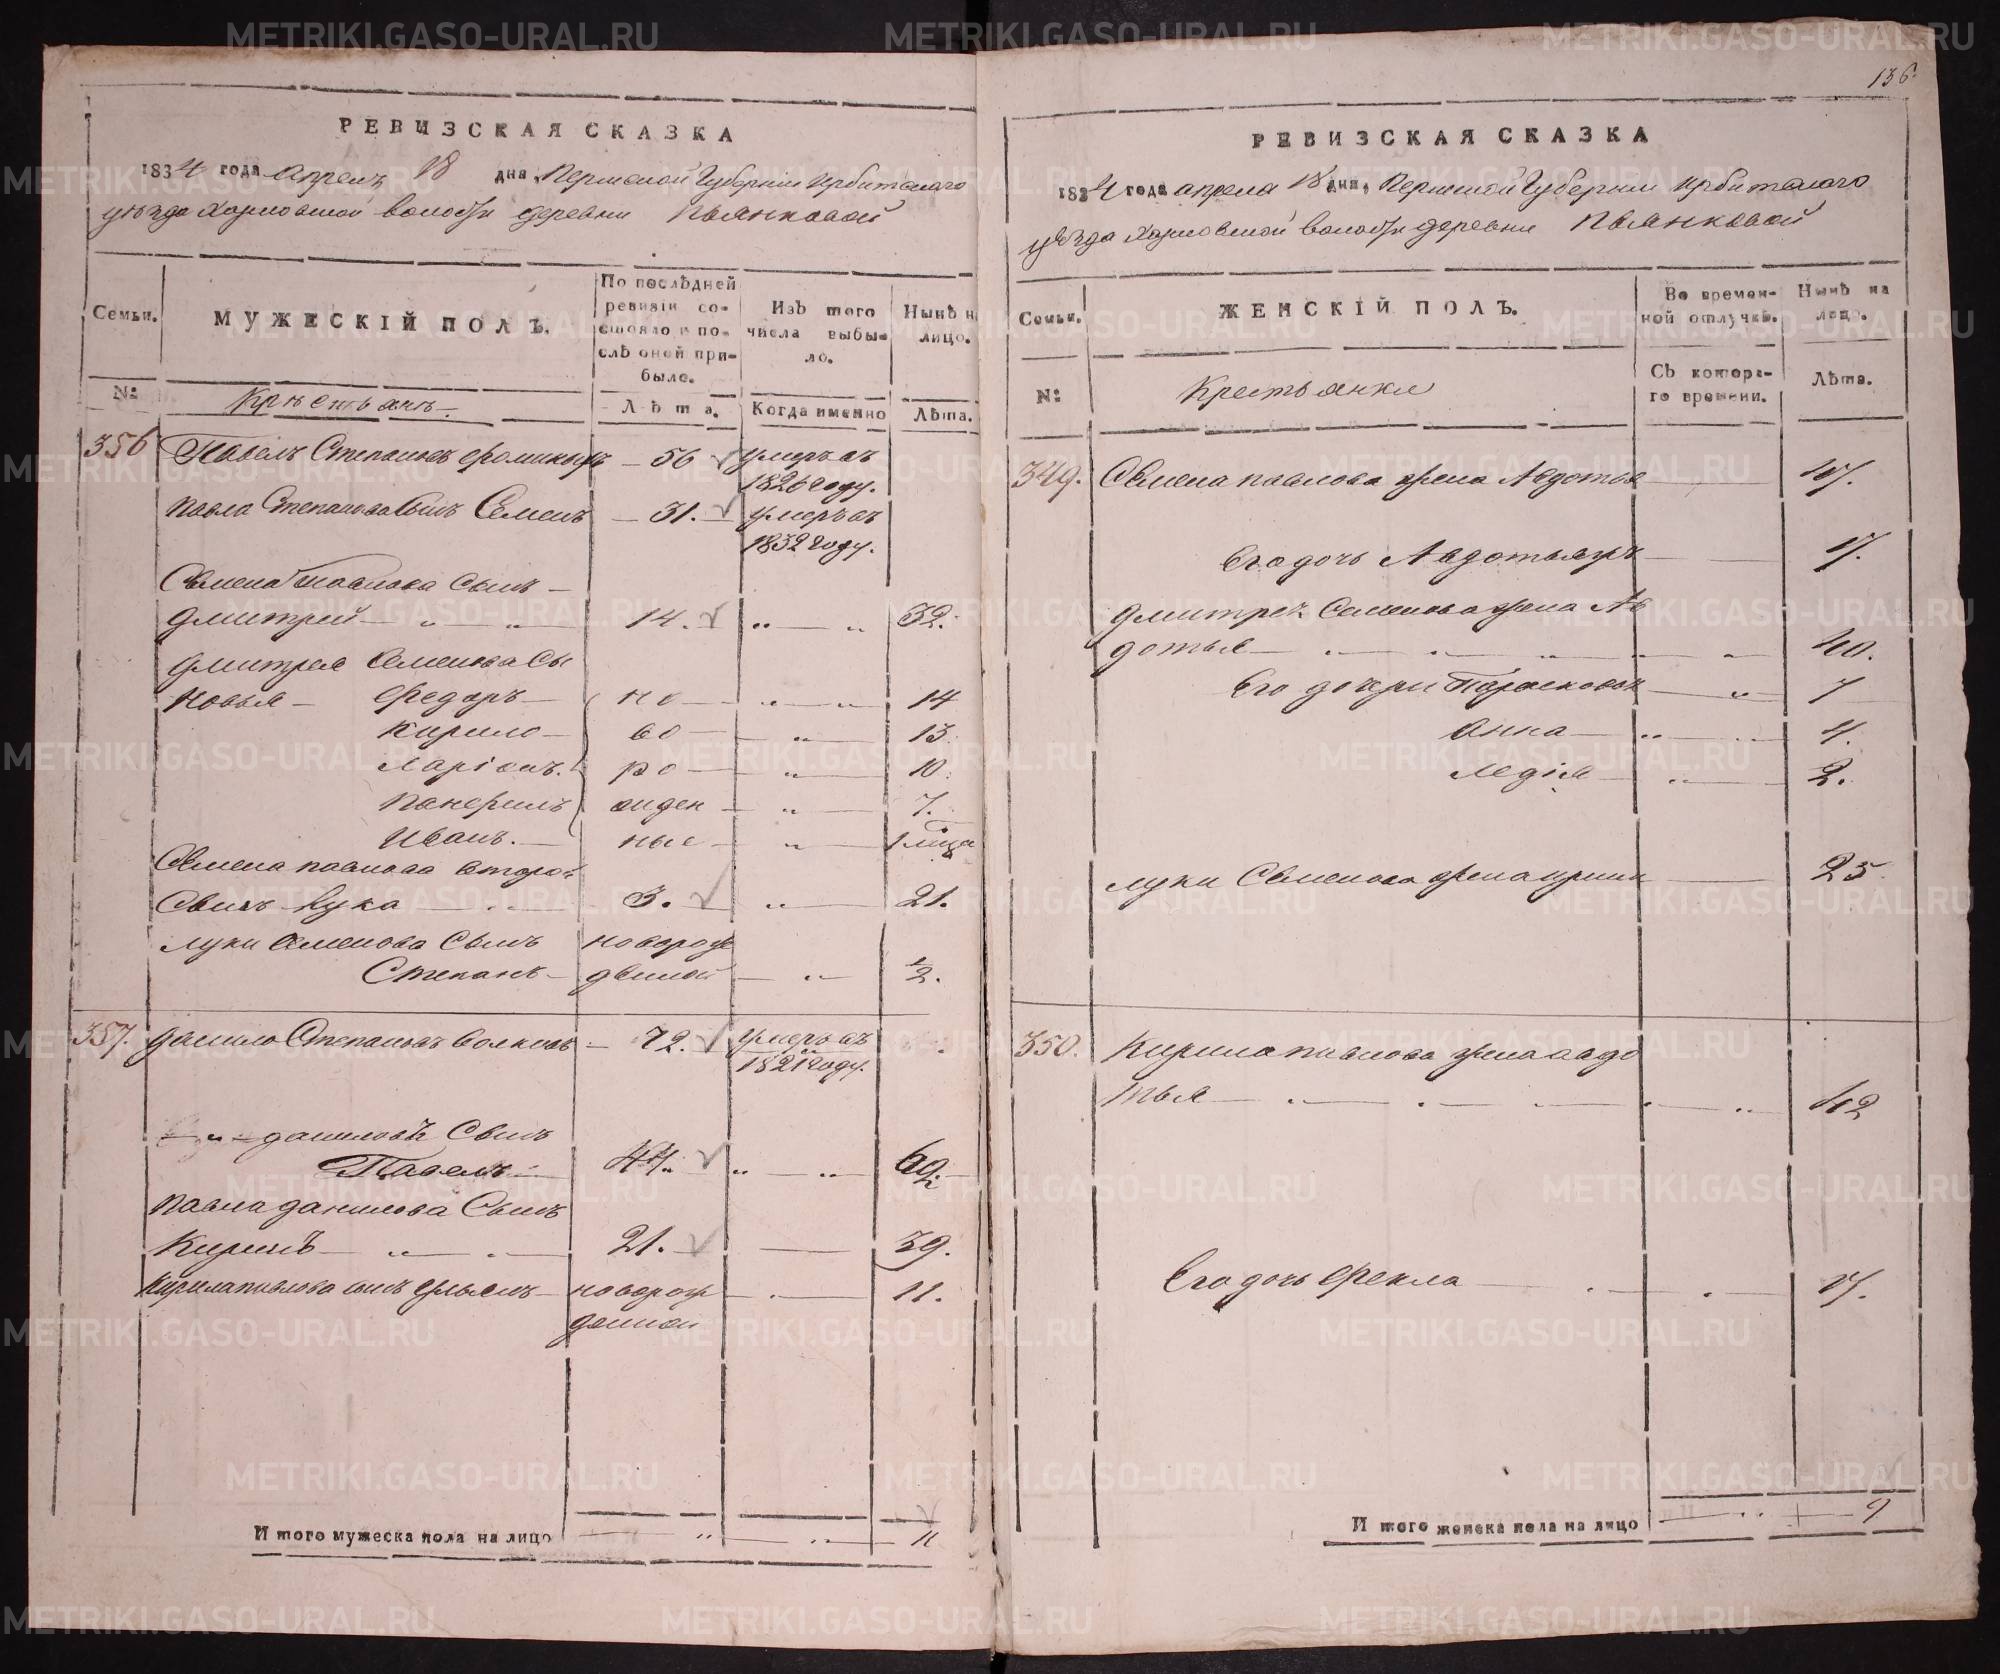 136.
РЕВИЗСКАЯ СКАЗКА
1834 года апрель 18 дня, Пермской Губернии Ирбитского
уѣзда Харловской волости деревни Пьянковой
Семьи.
МУЖЕСКІЙ ПОЛЪ.
По послѣдней
ревизіи со-
стояло и по-
слѣ оной при-
было.
Изъ того
числа выбы-
ло.
Нынѣ н
лицо.
№:
Крѣстьянъ
Лѣта.
Когда именно
Лѣта.
356 Павелъ Степановъ 56 умеръ въ
1826 году.
Павла Степанова Сынъ Семенъ 31. умеръ въ
1832 году.
Семена Павлова Сынъ
Дмитрей 14. 32.
Дмитрея Семенова Сы
новья Федоръ но 14
Кирило во 13.
Ларіонъ. ро 10.
Панфилъ жден 7.
Иванъ. ные 1
Семена павлова второй
Сынъ Лука 3. 21.
Луки Семенова Сынъ новорож
Степанъ денной 1/2.
357. Данило Степановъ Волковъ 72. умеръ въ
1821 году.
даниловъ Сынъ
Павелъ 69.
Павла данилова Сынъ
Кирилъ 21. 39.
Кирила павлова сынъ новорож 11.
денной
И того мужеска пола на лицо 11
РЕВИЗСКАЯ СКАЗКА
1834 года апреля 18 дня, Пермской Губернии Ирбитского
уѣзда Харловской волости деревни Пьянковой
Семьи.
ЖЕНСКІЙ ПОЛЪ.
Во времен-
ной отлучкѣ.
Нынѣ на
лицо.
№:
Крестьянки
Съ которо-
го времени.
Лѣта.
349. Семена павлова жена Авдотья
Его дочь Авдотья
Дмитрея Семенова жена Ав
дотья 40.
Его дочери Парасковья 7
Анна 4.
Ледія 2.
Луки Семенова жена 25
350. Кирила павлова жена авдо
тья 42
Его дочь Фекла
И того женска пола на лицо 9
METRIKI.GASO-URAL.RU